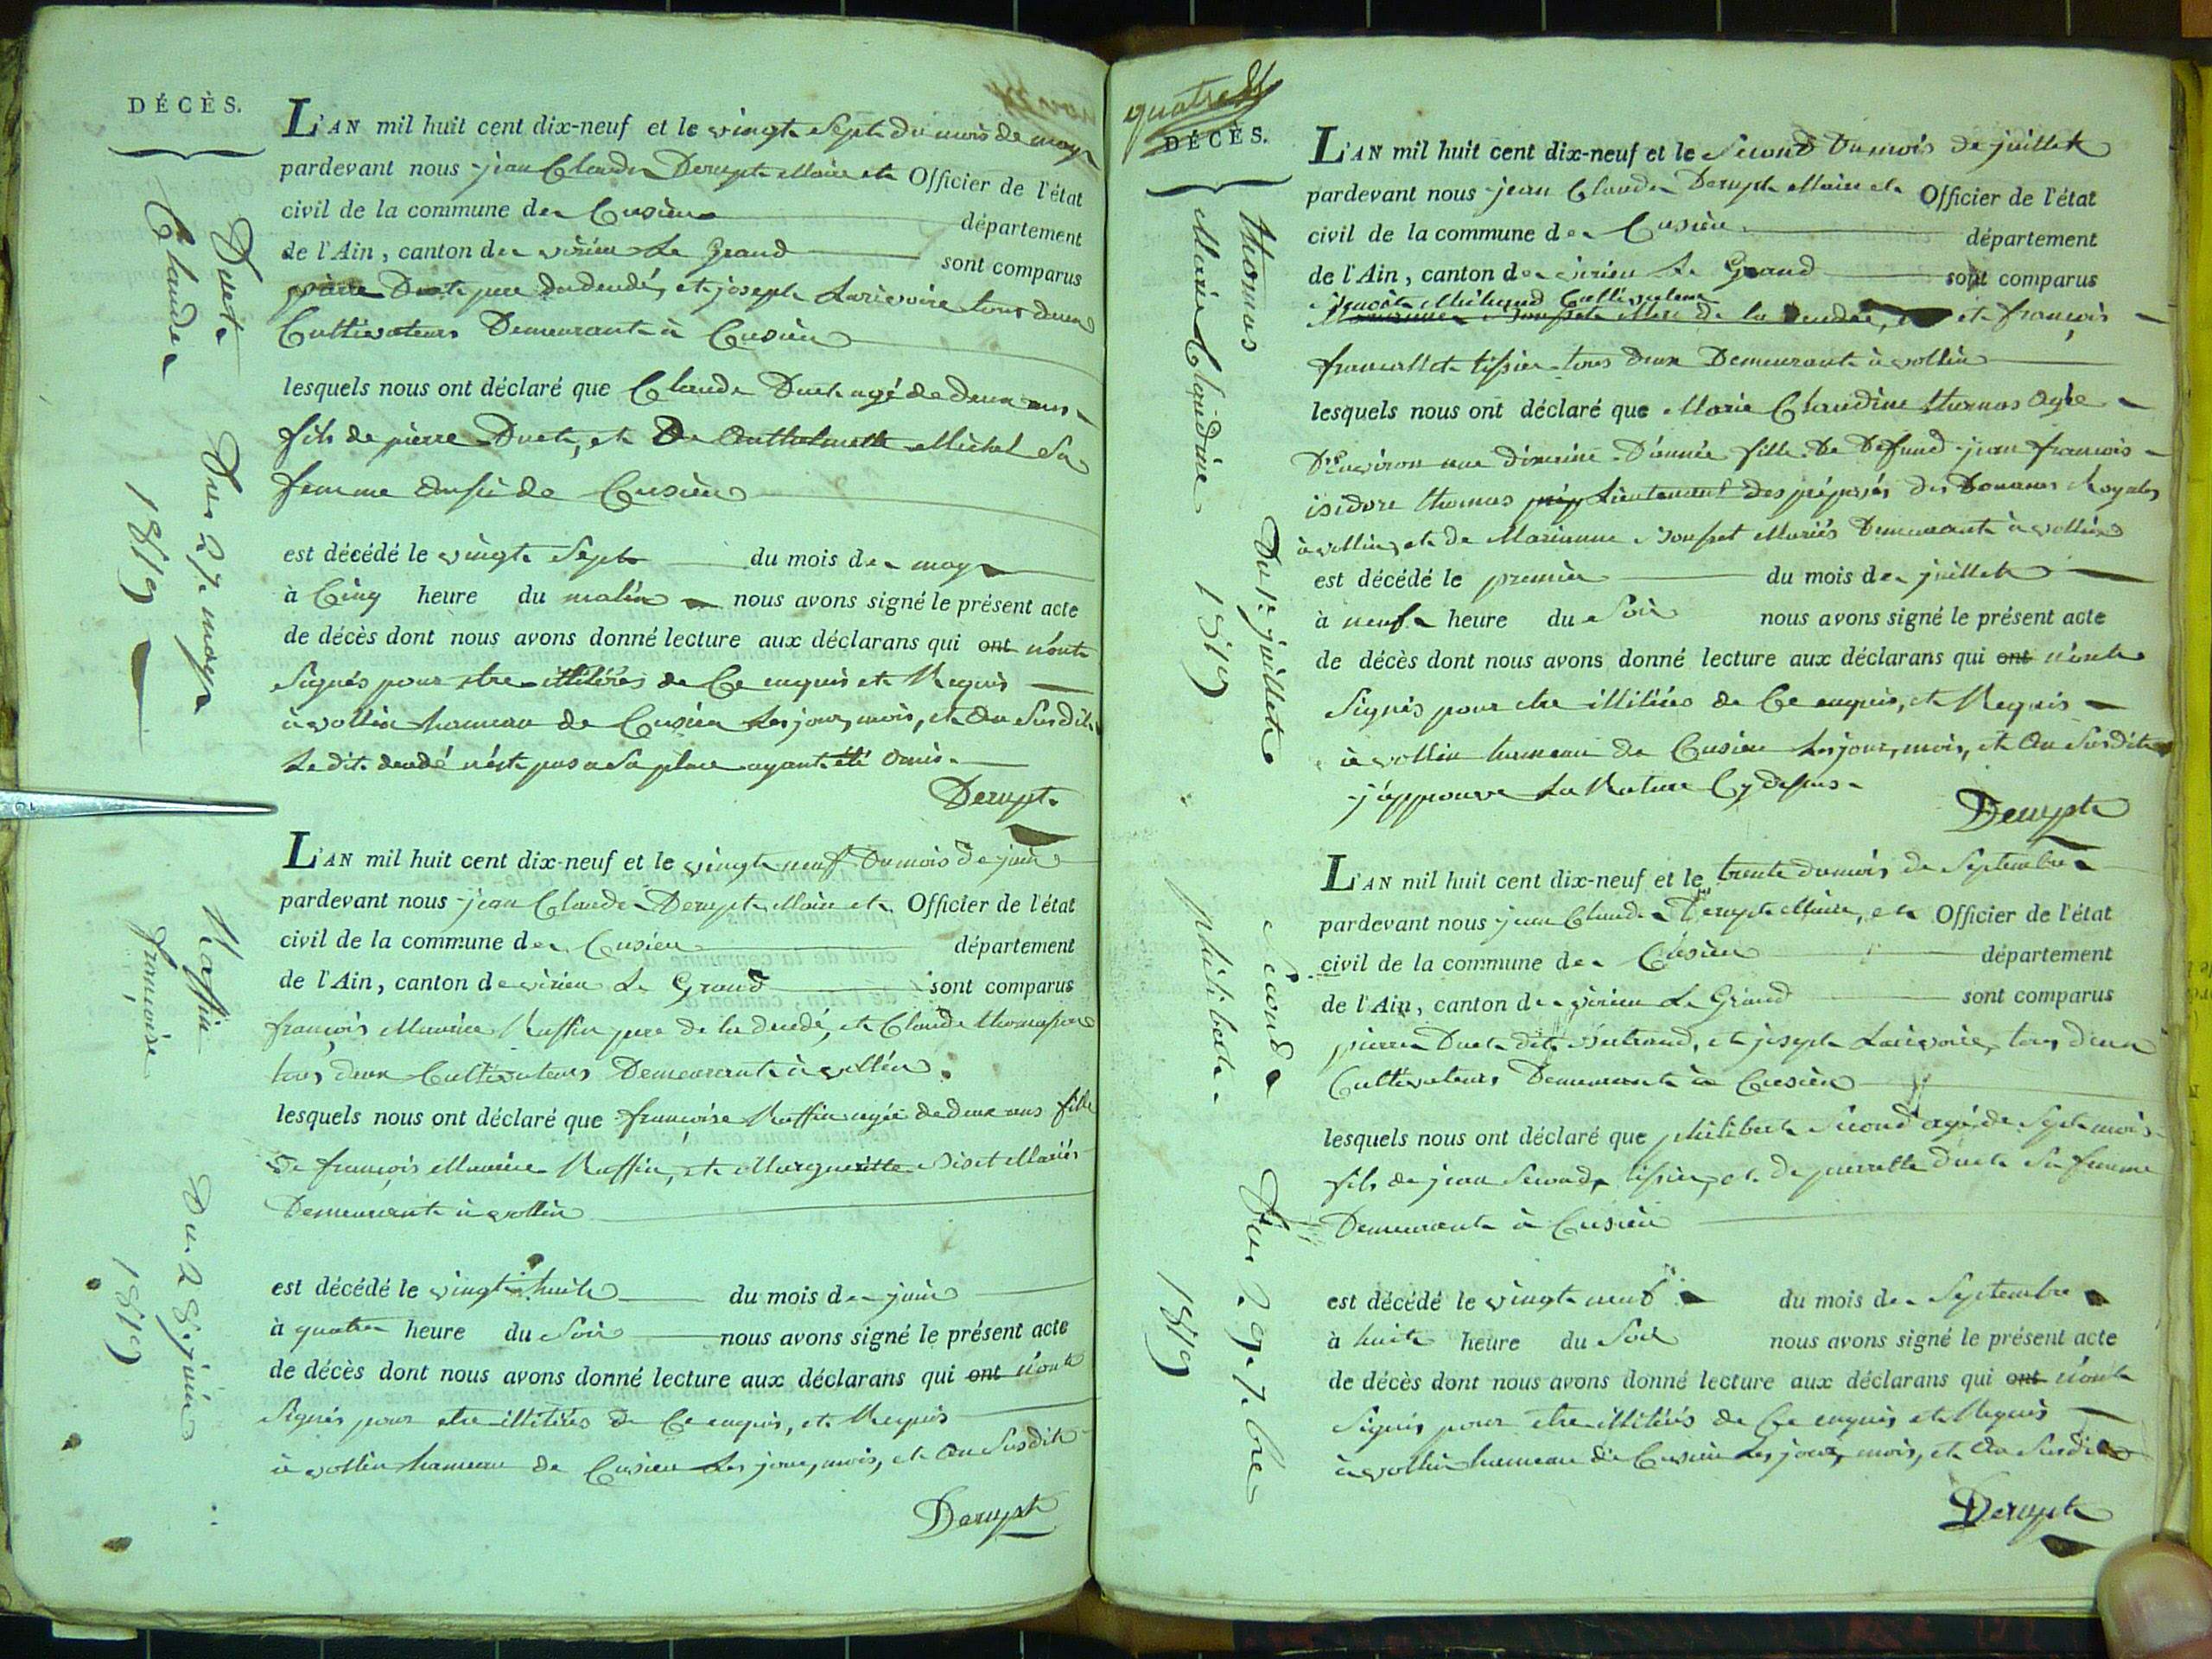 DÉCÈS.
Duet
Claude
Du 27 may
1819
L'AN mil huit cent dix-neuf et le vingt Sept du mois de may
pardevant nous jean Claude Derupt Maire et Officier de l'état
civil de la commune de Cusieu département
de l'Ain, canton de virieu Le Grand sont comparus
pierre Duet pere du dcudé, et joseph Larivoire tous deux
Cultivateurs Demeurant à Cusieu
lesquels nous ont déclaré que Claude Duet agé de deux ans
fils de pierre Duet, et De Anthelmette Michel Sa
femme aussi de Cusieu
est décédé le vingt Sept du mois de may
à Cinq heure du matin nous avons signé le présent acte
de décès dont nous avons donné lecture aux déclarans qui ont n'ont
Signés pour etre illitérés de Ce enquis et Requis
à vollin hameau de Cusieu Les jour, mois, et An Susdit
Le dit n'est pas a Sa place ayant été omis.
Derupt
Raffin
françoise
Du 28 juin
1819
L'AN mil huit cent dix-neuf et le vingt neuf Du mois de juin
pardevant nous jean Claude Derupt Maire et Officier de l'état
civil de la commune de Cusieu département
de l'Ain, canton de virieu Le Grand sont comparus
françois Maurice Raffin pere de la dcudé, et Claude
tous deux Cultivateurs Demeurant à vollin.
lesquels nous ont déclaré que françoise Raffin agée de deux ans fille
De françois Maurice Raffin, et Margueritte Mariés
Demeurant à vollin
est décédé le vingt huit du mois de juin
à quatre heure du Soir nous avons signé le présent acte
de décès dont nous avons donné lecture aux déclarans qui ont n'ont
Signés pour etre illitérés de Ce enquis, et Requis
à vollin hameau de Cusieu Les jour, mois, et An Susdit
Derupt
quatre
DÉCÈS.
thomas
Marie Claudine
Du 1er juillet
1819
L'AN mil huit cent dix-neuf et le Second Du mois de juillet
pardevant nous jean Claude Derupt Maire et Officier de l'état
civil de la commune de Cusieu département
de l'Ain, canton de virieu Le Grand sont comparus
Benoit Michaud Cultivateur
Marianne Mere de la et françois
tissier tous deux Demeurant à vollin
lesquels nous ont déclaré que Marie Claudine thomas agée
D'Environ une Dixaine D'année fille De Defund jean francois
isidore thomas Lieutenant des préposés des Douanes Royales
à vollin, et de Marianne Mariés Demeurant à vollin
est décédé le premier du mois de juillet
à neuf heure du Soir nous avons signé le présent acte
de décès dont nous avons donné lecture aux déclarans qui ont n'ont
Signés pour etre illitérés de Ce enquis, et Requis
à vollin hameau de Cusieu Les jour, mois, et An Susdit
j'approuve La Rature Cy dessus
Derupt
Second
philibert
Du 29 7.bre
1819
L'AN mil huit cent dix-neuf et le trente du mois de Septembre
pardevant nous jean Claude Derupt Maire, et Officier de l'état
civil de la commune de Cusieu département
de l'Ain, canton de virieu Le Grand sont comparus
pierre Duet dit Bertrand, et joseph Larivoire, tous deux
Cultivateurs Demeurant à Cusieu
lesquels nous ont déclaré que philibert Second agé de Sept mois
fils de jean Second, tissier, et de pierrette Duet Sa femme
Demeurant à Cusieu
est décédé le vingt neuf du mois de Septembre
à huit heure du Soir nous avons signé le présent acte
de décès dont nous avons donné lecture aux déclarans qui ont n'ont
Signés pour etre illitérés de Ce enquis et Requis
à vollin hameau de Cusieu Les jour, mois, et An Susdit
Derupt